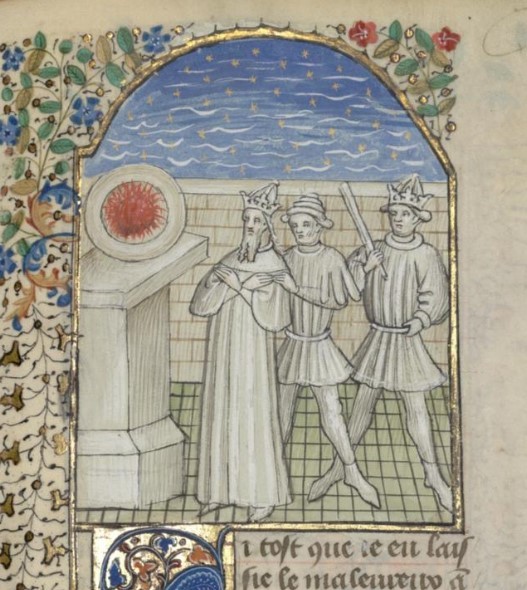 Si tost que ie eu lais
sie le maleureux